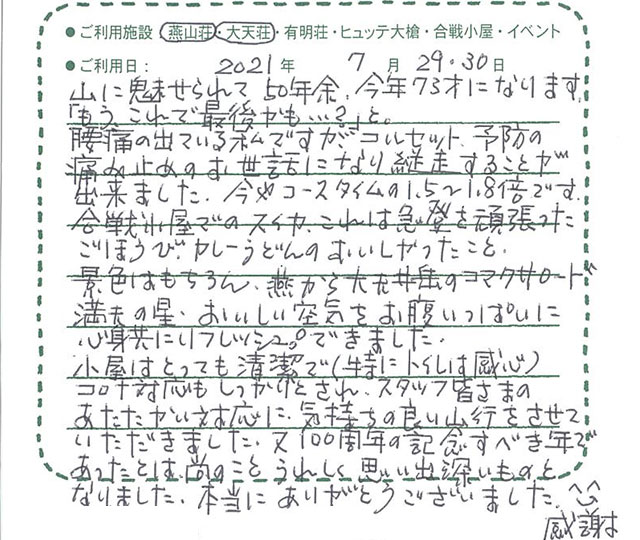 ● ご利用施設 燕山荘・大天荘・有明荘・ヒュッテ大槍・合戦小屋・イベント
● ご利用日： 2021 年 7 月 29・30 日
山に魅せられて50年余、今年73才になります。
「もう、これで最後かも…？」と。
腰痛の出ている私ですが、コルセット、予防の
痛み止めのお世話になり縦走することが
出来ました。今やコースタイムの1.5～1.8倍です。
合戦小屋でのスイカ、これは急登を頑張った
ごほうび、カレーうどんのおいしかったこと。
景色はもちろん、燕から大天井岳のコマクサロード
満天の星、おいしい空気をお腹いっぱいに
心身共にリフレッシュ。できました。
小屋はとっても清潔で（特にトイレは感心）
コロナ対応もしっかりとされ、スタッフ皆さまの
あたたかい対応に、気持ちの良い山行をさせて
いただきました。又100周年の記念すべき年で
あったとは尚のこと うれしく思い出深いものと
なりました。本当にありがとうございました。^^
感謝